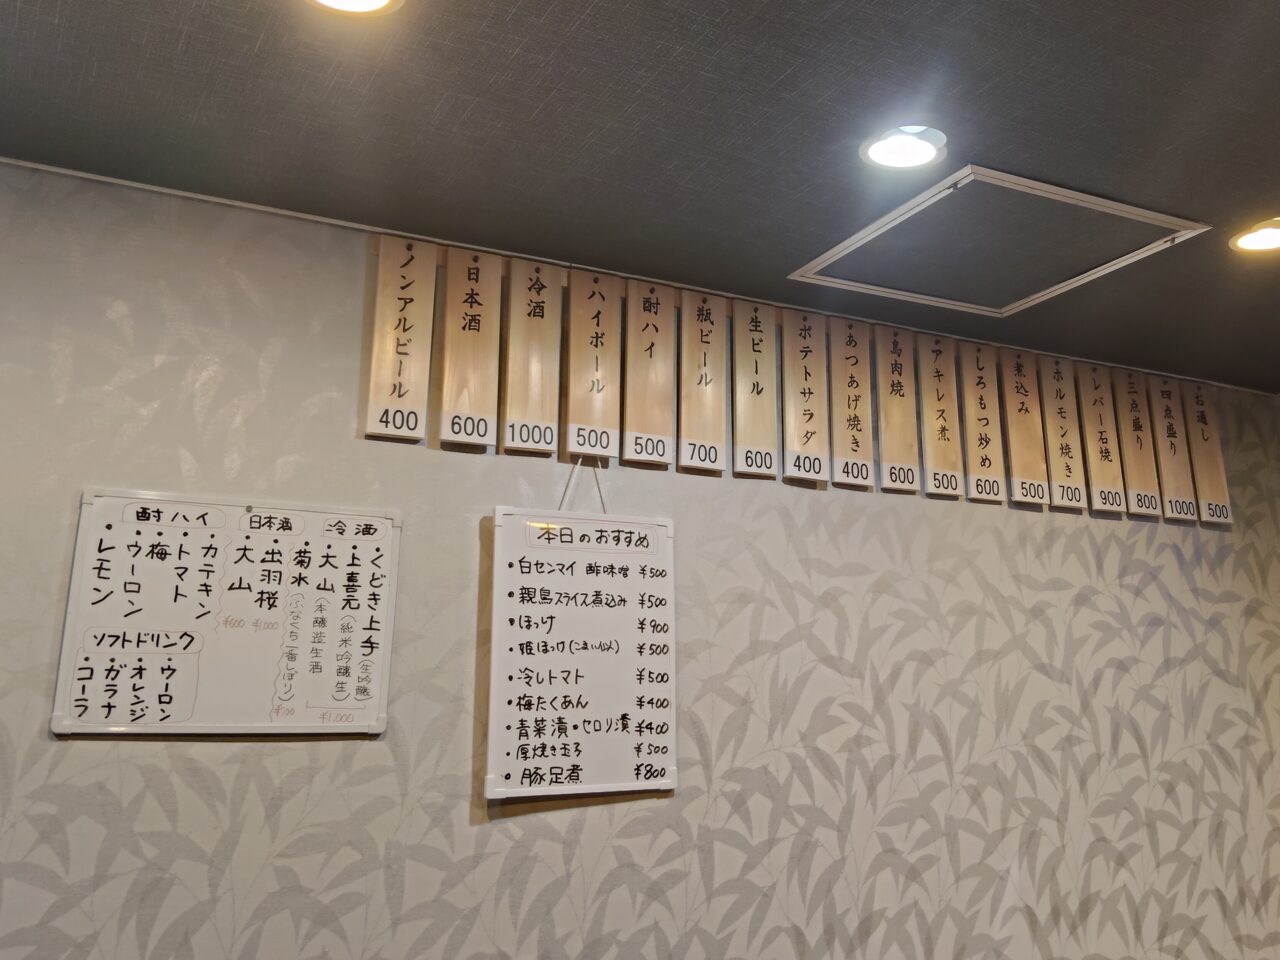 お通し 500
四点盛り 1000
三点盛り 800
レバー石焼 900
ホルモン焼き 700
煮込み 500
しろもつ炒め 600
アキレス煮 500
鳥肉焼 600
あつあげ焼き 400
ポテトサラダ 400
生ビール 600
瓶ビール 700
酎ハイ 500
ハイボール 500
冷酒 1000
日本酒 600
ノンアルビール 400
冷酒
・くどき上手(生吟醸)
・上喜元(純米吟醸生)
・大山(本醸造生酒)
¥1,000
・菊水(ふなくち一番しぼり)
日本酒
・出羽桜 ¥1,000
・大山 ¥600
酎ハイ
・カテキン
・トマト
・梅
・ウーロン
・レモン
ソフトドリンク
・ウーロン
・オレンジ
・ガラナ
・コーラ
本日のおすすめ
・白センマイ 酢味噌 ¥500
・親鳥スライス煮込み ¥500
・ほっけ ¥900
・姫ほっけ ¥500
・冷しトマト ¥500
・梅たくあん ¥400
・青菜漬・セロリ漬 ¥400
・厚焼き玉子 ¥500
・豚足煮 ¥800